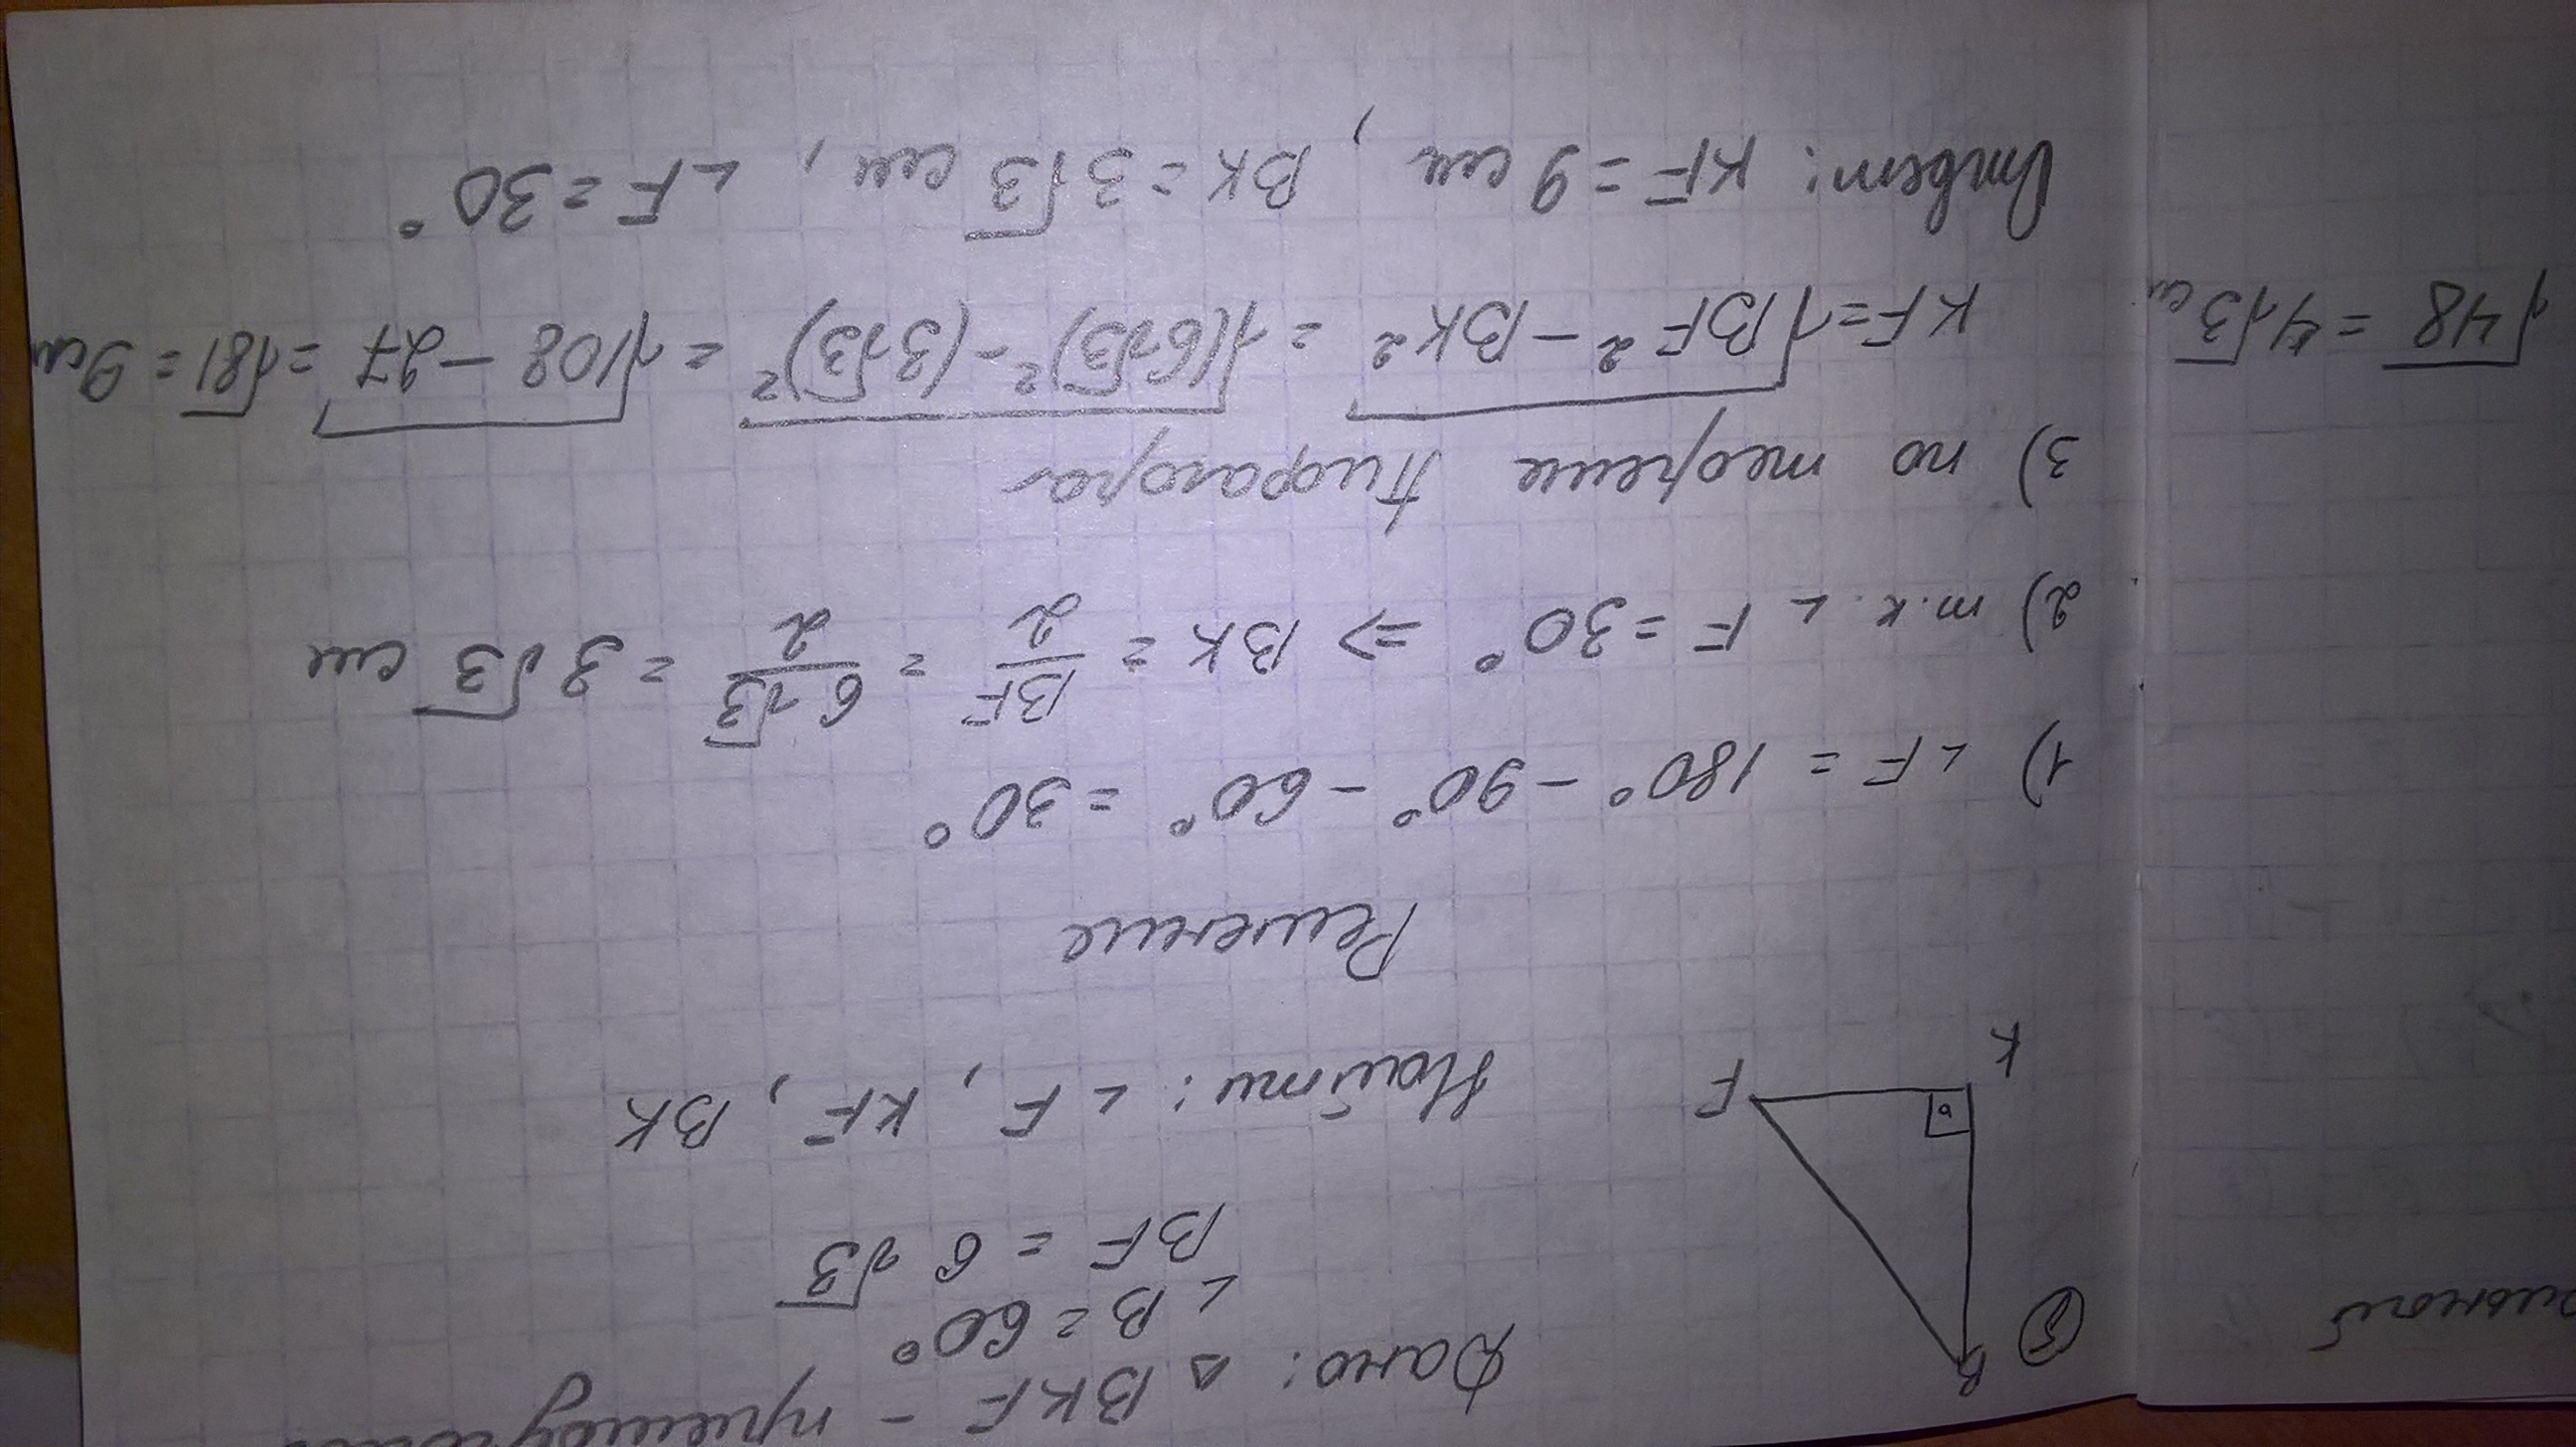 ⑤
B
K
F
Дано: △ BKF –
∠ B = 60°
BF = 6√3
Найти: ∠ F, KF, BK
Решение
1) ∠ F = 180° – 90° – 60° = 30°
2) т.к. ∠ F = 30° ⇒ BK = BF/2 = 6√3/2 = 3√3 см
3) по теореме Пифагора
KF = √BF² – BK² = √(6√3)² – (3√3)² = √108 – 27 = √81 = 9 см
Ответ: KF = 9 см, BK = 3√3 см, ∠ F = 30°
√48 = 4√3 см